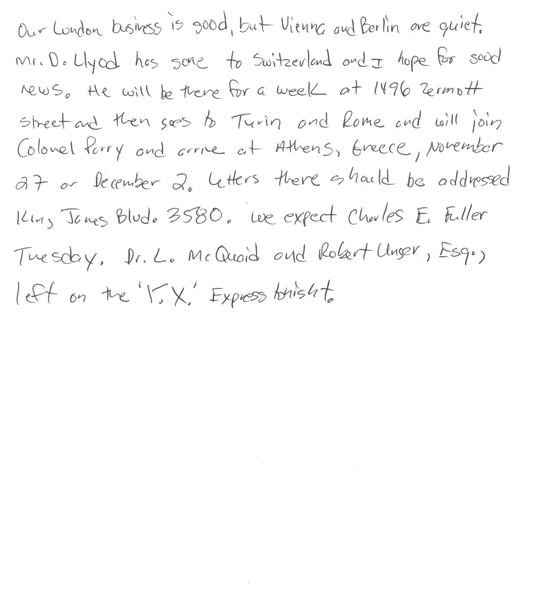 Our London business is good, but Vienna and Berlin are quiet.
Mr. D. Llyod has gone to Switzerland and I hope for good
news. He will be there for a week at 1496 Zermott
Street and then goes to Turin and Rome and will join
Colonel Parry and arrive at Athens, Greece, November
27 or December 2. Letters there should be addressed
King James Blvd. 3580. We expect Charles E. Fuller
Tuesday. Dr. L. McQuaid and Robert Unger, Esq.,
left on the 'Y.X.' Express tonight.